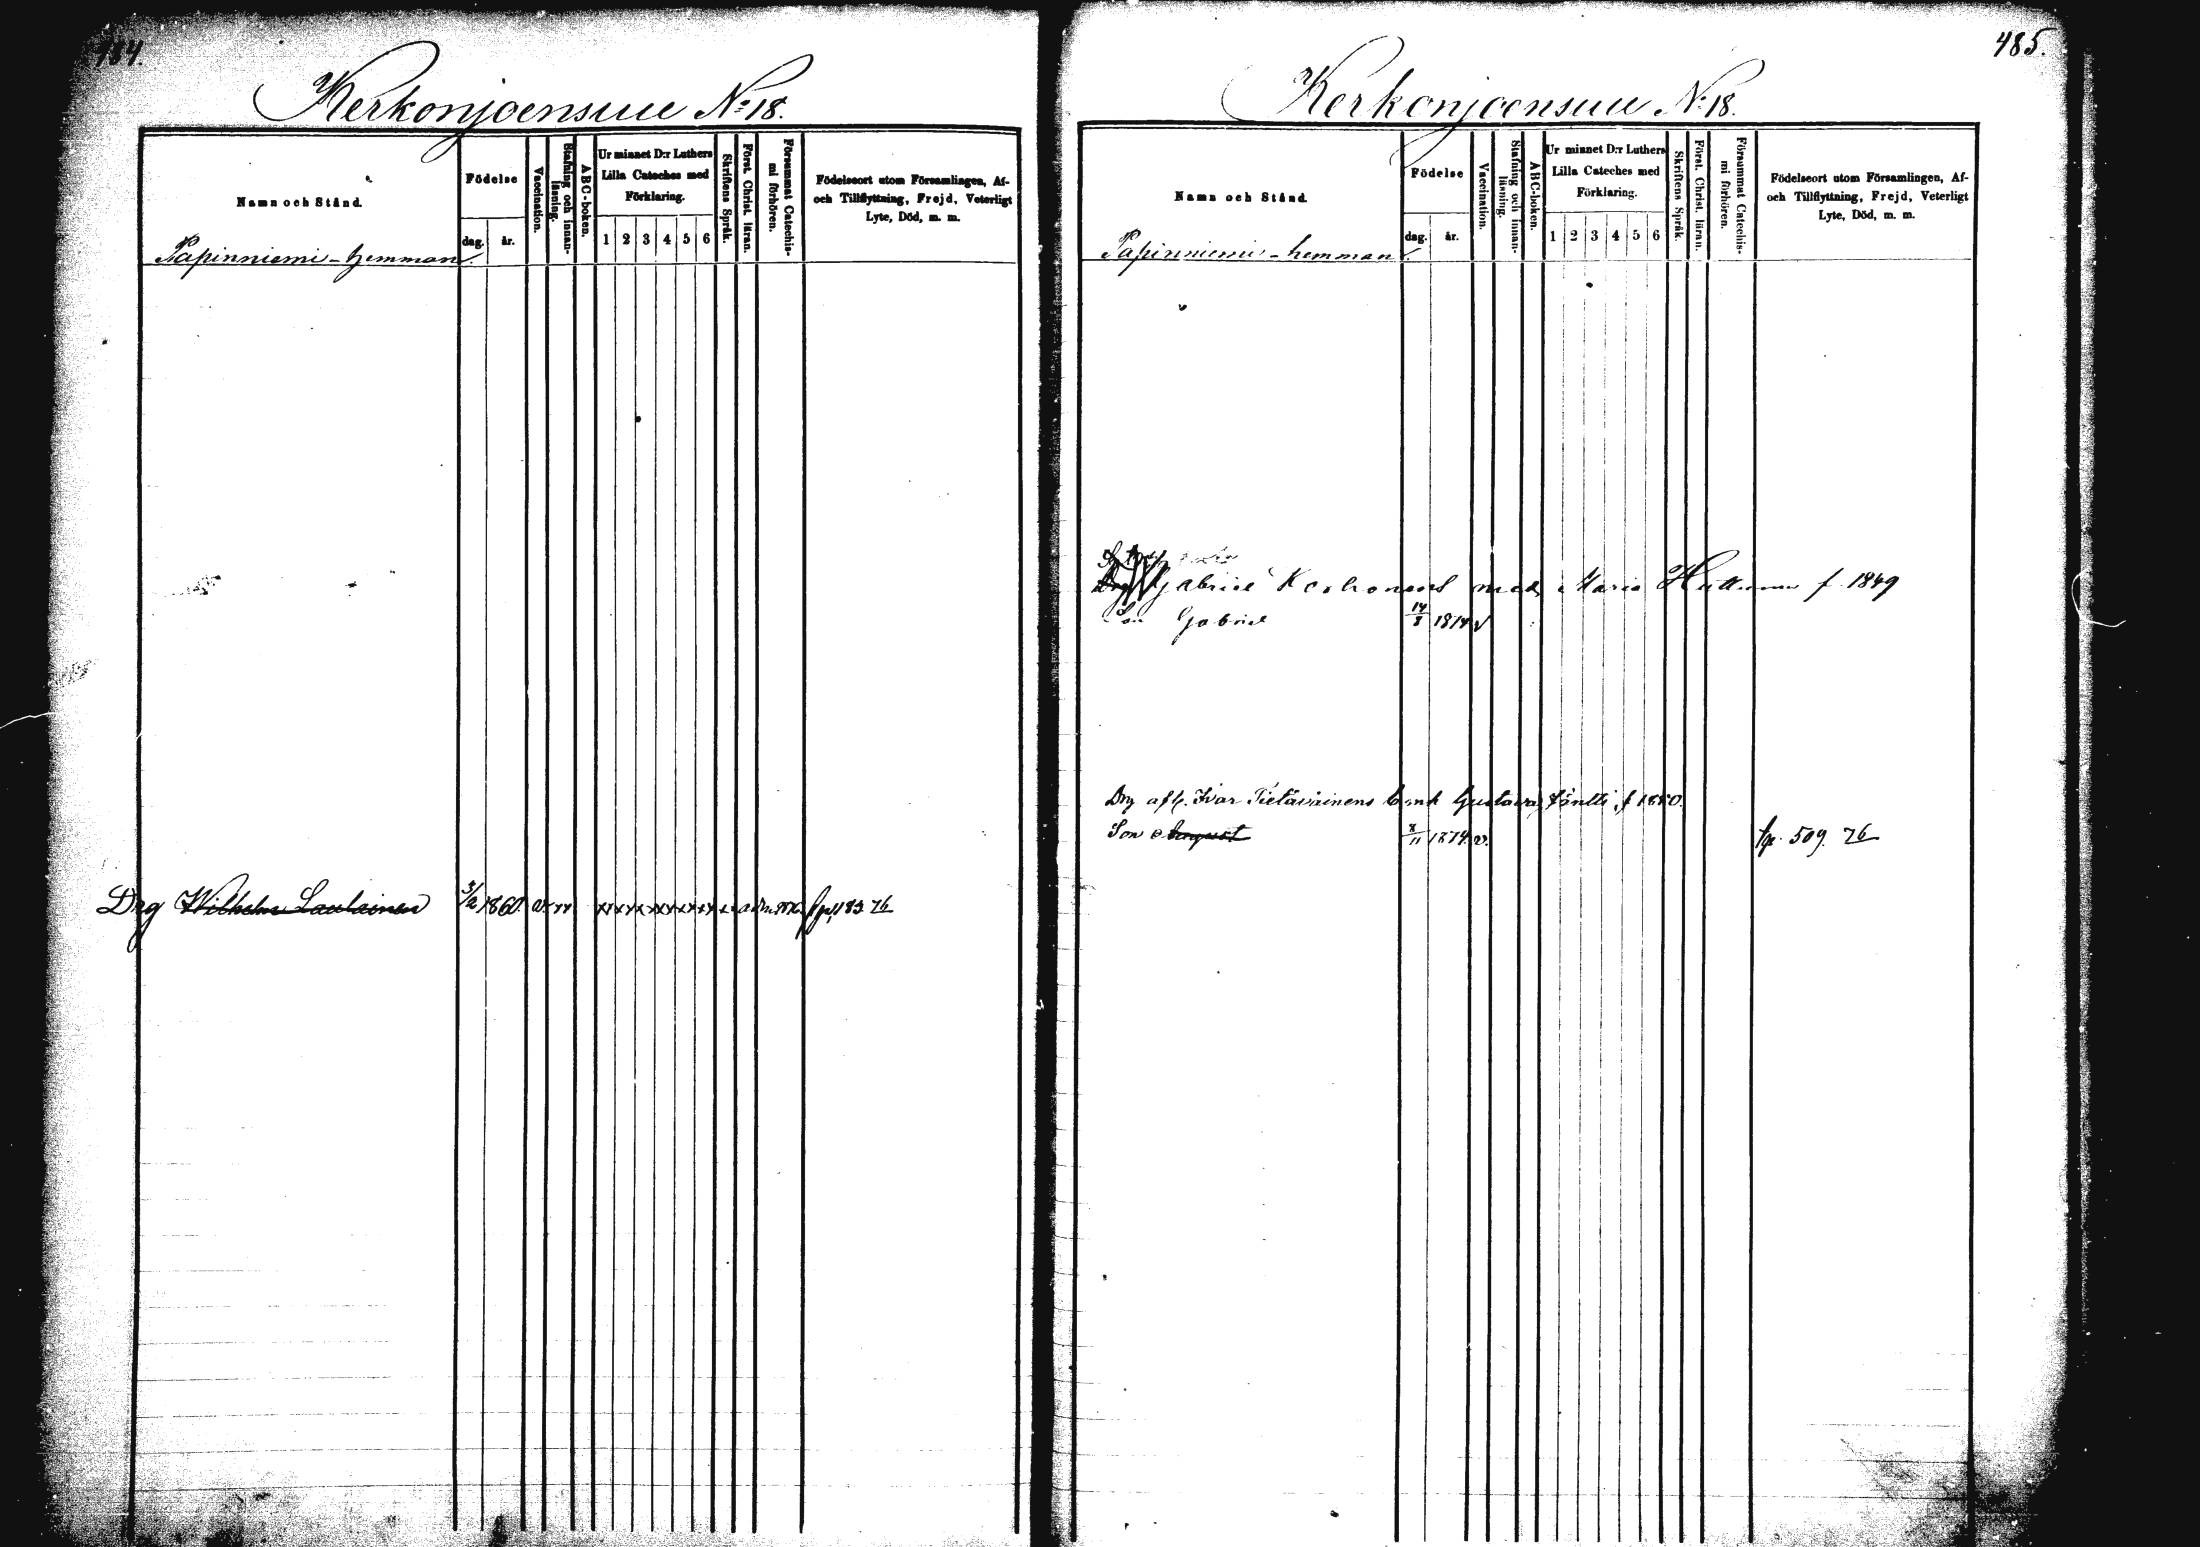 484.
Kerkonjoensuu No 18.
Namn och Stånd.
Födelse
dag.
år.
Vaccination.
Stafning och innan-
läsning.
ABC-boken.
Ur minnet D:r Luthers
Lilla Cateches med
Förklaring.
1 2 3 4 5 6
Skriftens Språk.
Först. Christ. läran.
Försummat Catechis-
mi förhören.
Födelseort utom Församlingen, Af-
och Tillflyttning, Frejd, Veterligt
Lyte, Död, m. m.
Papinniemi - hemman
Drg Wilhelm Laulainen 3/2 1860. v. p. 183. 76
485.
Kerkonjoensuu No 18.
Namn och Stånd.
Födelse
dag.
år.
Vaccination.
Stafning och innan-
läsning.
ABC-boken.
Ur minnet D:r Luthers
Lilla Cateches med
Förklaring.
1 2 3 4 5 6
Skriftens Språk.
Först. Christ. läran.
Försummat Catechis-
mi förhören.
Födelseort utom Församlingen, Af-
och Tillflyttning, Frejd, Veterligt
Lyte, Död, m. m.
Papinniemi - hemman
Gabriel Korhonens med Maria f. 1849
Son Gabriel 14/8 1874 v
Drg afl. Ivar Pietäväinens Enk Gustava Jäntti f 1850.
Son August 8/11 1874. v. p. 509. 76